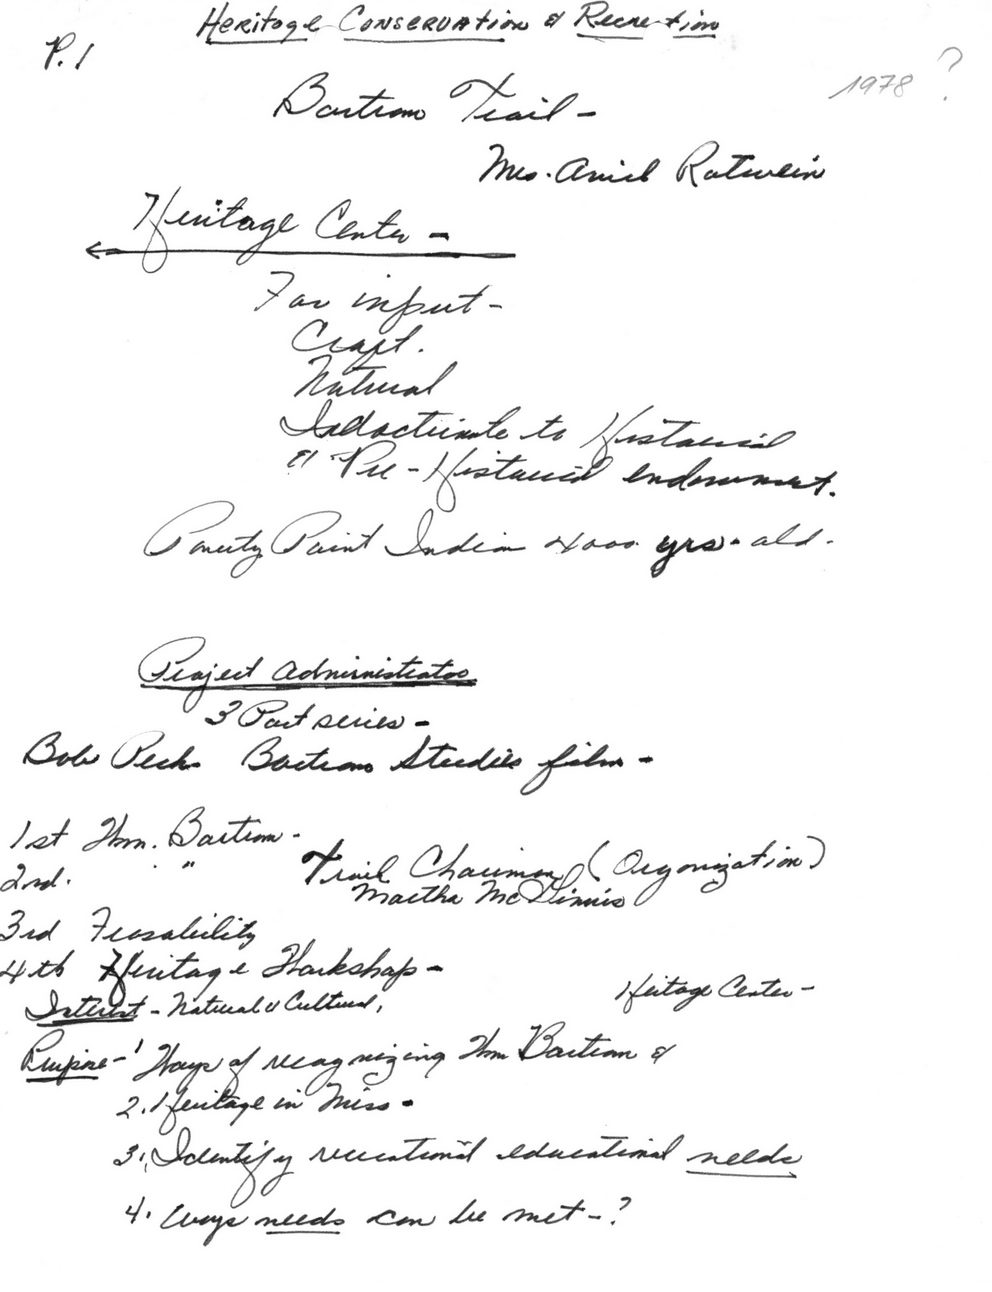 Heritage Conservation & Recreation
P.1
1978 ?
Bartram Trail -
Mrs.
Heritage Center -
For input -
Craft.
Natural
Indoctrinate to Historical
& Pre-Historical endowment.
Poverty Point Indian 4000 yrs. old.
Project Administrator
3 Part series -
Bob Peck Bartram Studies film -
1st Wm. Bartram -
2nd. " Trail Chairman (Organization)
Martha McGinnis
3rd Feasability
4th Heritage Workshop -
Heritage Center -
Interest - Natural & Cultural,
Purpose - 1 Ways of recognizing Wm Bartram &
2. Heritage in Miss -
3. Identify recreational educational needs
4. Ways needs can be met - ?